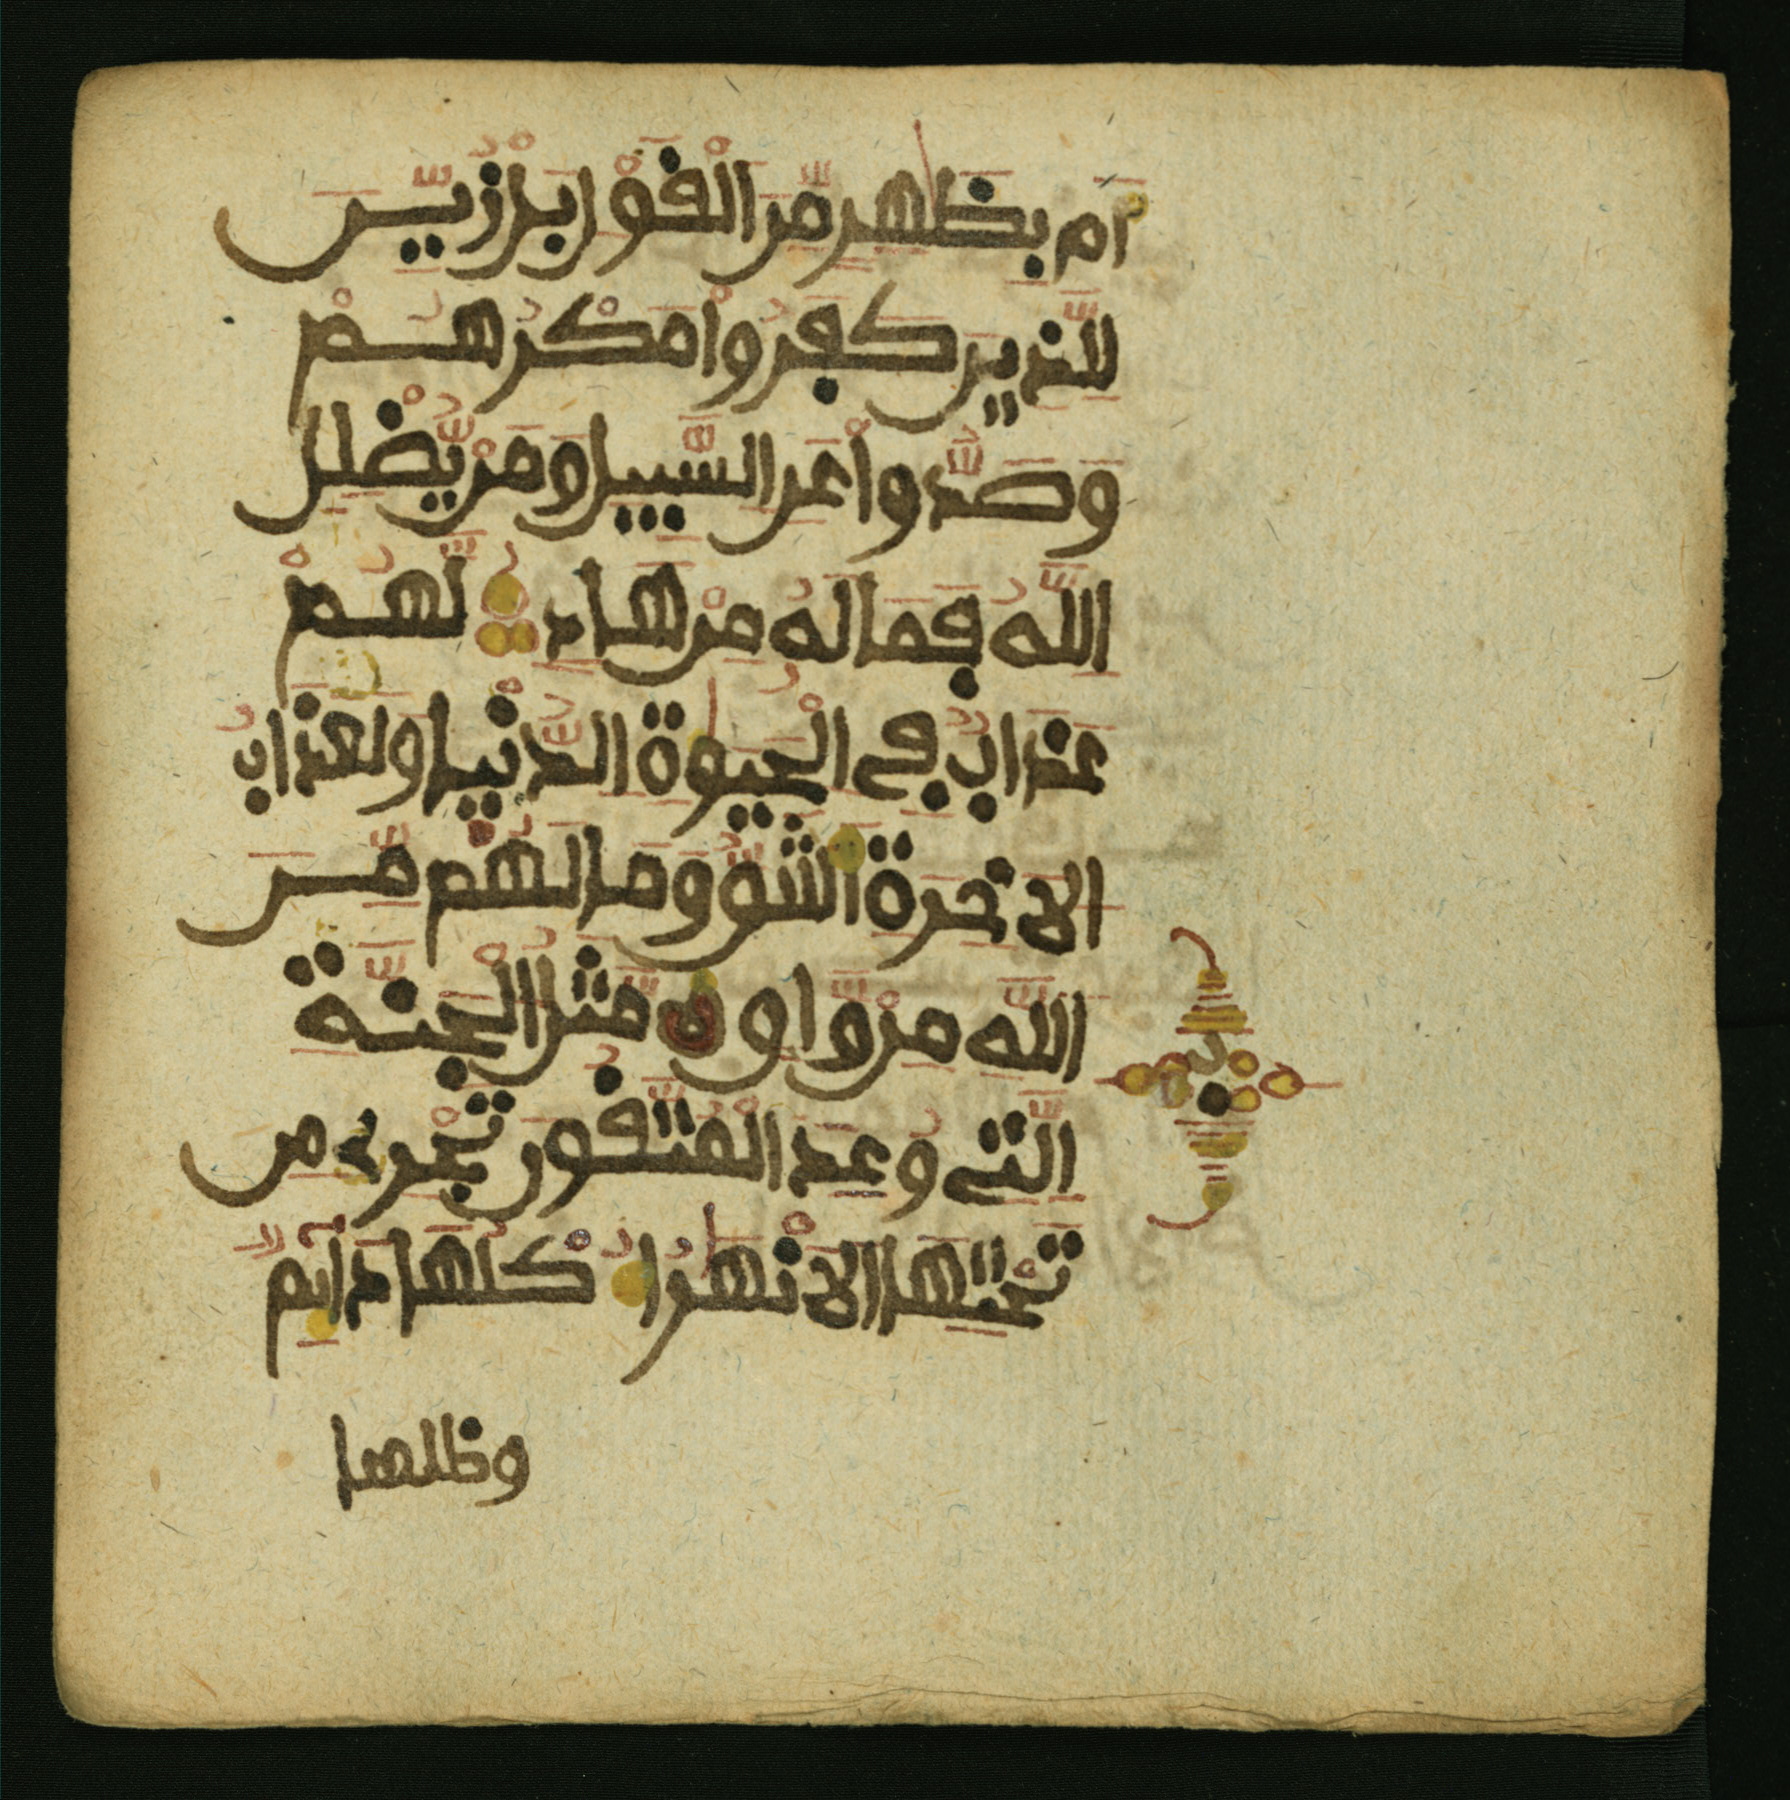 ام بظهر من القول بل زين
للذين كفروا مكرهم
وصدوا عن السبيل ومن يضلل
الله فما له من هاد لهم
عذاب في الحيوة الدنيا ولعذاب
الاخرة اشق وما لهم من
الله من واق مثل الجنة
التي وعد المتقون تجري من
تحتها الانهر اكلها دايم
وظلها